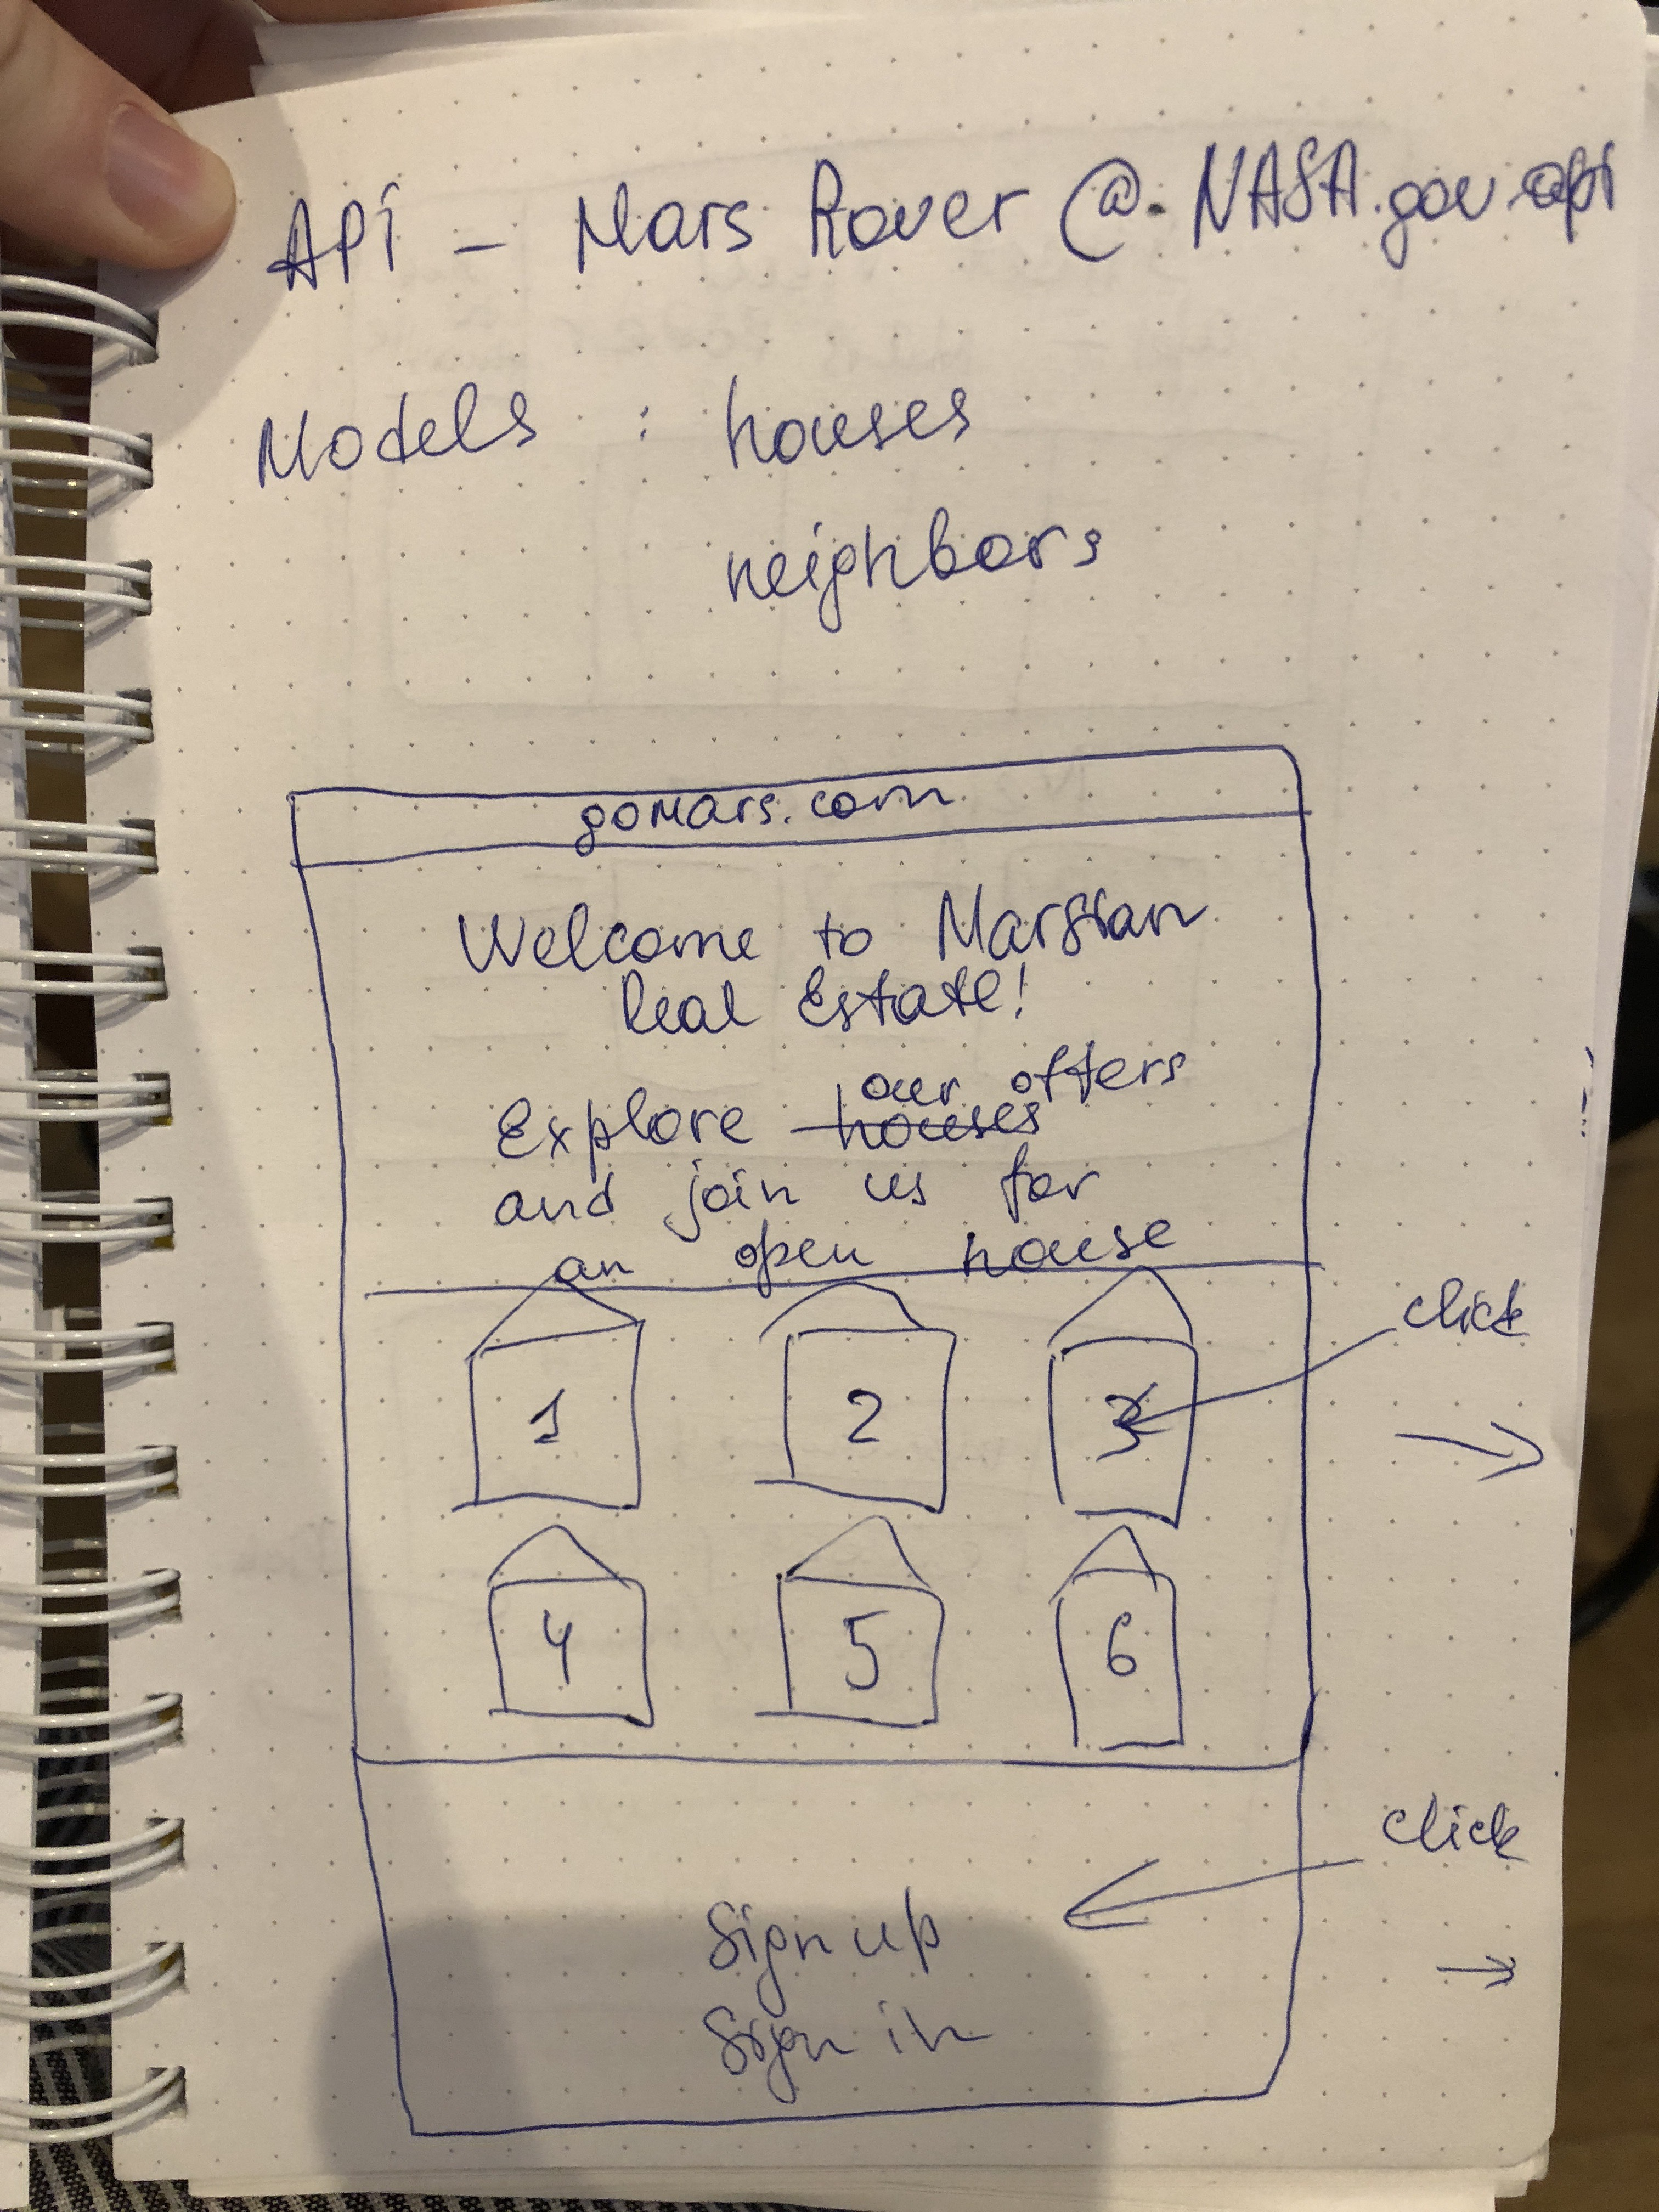 API - Mars Rover @ NASA.gov.api
Models : houses
neighbors
goMars.com
Welcome to Marsian
Real Estate!
our offers
Explore houses
and join us for
an open house
click
1 2 3
4 5 6
click
Sign up
Sign in